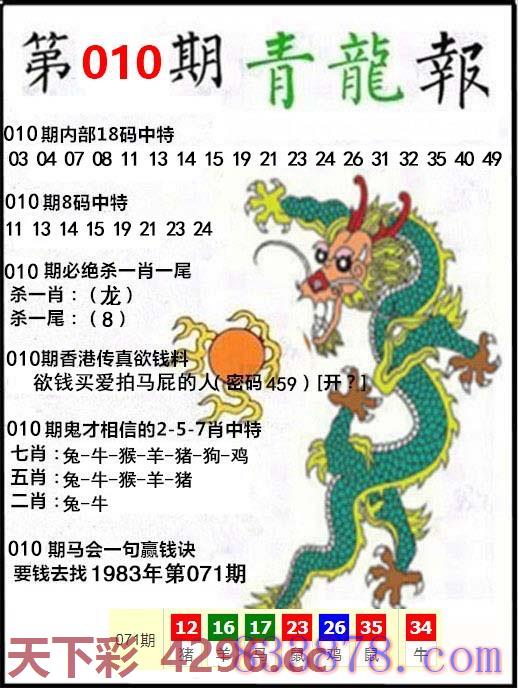 第010期青龍報
010期内部18码中特
03 04 07 08 11 13 14 15 19 21 23 24 26 31 32 35 40 49
010期8码中特
11 13 14 15 19 21 23 24
010期必绝杀一肖一尾
杀一肖：（龙）
杀一尾：（8）
010期香港传真欲钱料
欲钱买爱拍马屁的人(密码459)[开？]
010期鬼才相信的2-5-7肖中特
七肖：兔-牛-猴-羊-猪-狗-鸡
五肖：兔-牛-猴-羊-猪
二肖：兔-牛
010期马会一句赢钱诀
要钱去找1983年第071期
071期 12 16 17 23 26 35 34
猪 羊 马 鼠 鸡 鼠 牛
天下彩 4296.cc